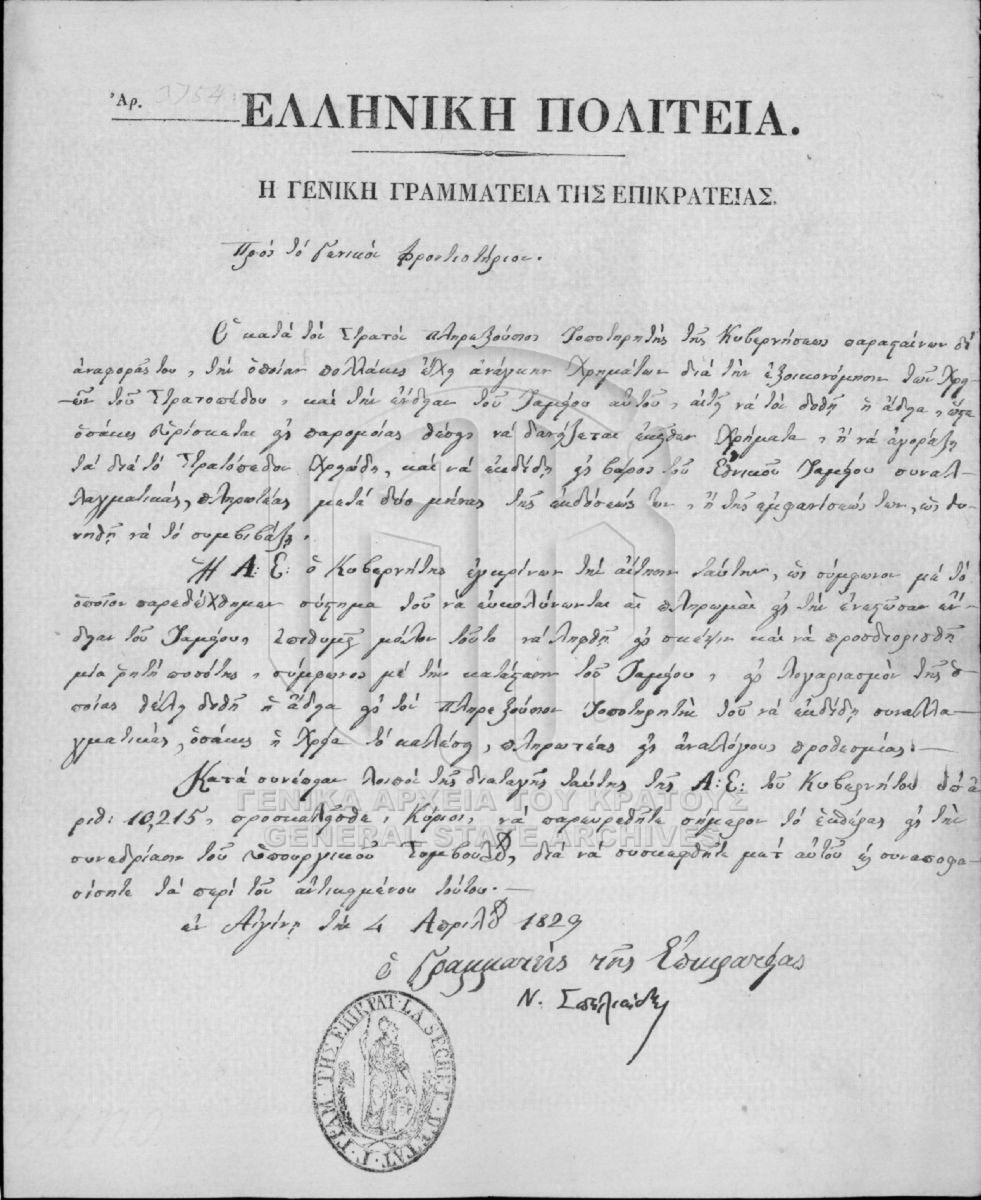 Ἀρ.
ΕΛΛΗΝΙΚΗ ΠΟΛΙΤΕΙΑ.
Η ΓΕΝΙΚΗ ΓΡΑΜΜΑΤΕΙΑ ΤΗΣ ΕΠΙΚΡΑΤΕΙΑΣ.
Πρὸς τὸ Γενικὸν Φροντιστήριον.
Ὁ κατὰ τὸν Στρατὸν πληρεξούσιος Τοποτηρητὴς τῆς Κυβερνήσεως παρασταίνων δι'
ἀναφορᾶς του, τὴν ὁποίαν πολλάκις ἔχει ἀνάγκην χρημάτων διὰ τὴν ἐξοικονόμησιν τῶν χρει-
ῶν τοῦ Στρατοπέδου, καὶ τὴν ἔνδειαν τοῦ Ταμείου αὐτοῦ, αἰτεῖ νὰ τὸν δοθῇ ἡ ἄδεια, ὥστε
ὁσάκις εὑρίσκεται εἰς παρομοίας θέσεις νὰ δανείζεται ἐκεῖθεν χρήματα, ἢ νὰ ἀγοράζῃ
τὰ διὰ τὸ Στρατόπεδον χρειώδη, καὶ νὰ ἐκδίδῃ εἰς βάρος τοῦ Ἐθνικοῦ Ταμείου συναλ-
λαγματικάς, πληρωτέας μετὰ δύο μῆνας τῆς ἐκδόσεώς των, ἢ τῆς ἐμφανίσεώς των, ὡς δυ-
νηθῇ νὰ τὸ συμβιβάζῃ.
Ἡ Α: Ε: ὁ Κυβερνήτης ἐγκρίνων τὴν αἴτησιν ταύτην, ὡς σύμφωνον μὲ τὸ
ὁποῖον παρεδέχθημεν σύστημα τοῦ νὰ εὐκολύνωνται αἱ πληρωμαὶ εἰς τὴν ἐνεστῶσαν ἔν-
δειαν τοῦ Ταμείου, ἐπιθυμεῖ μόλον τοῦτο νὰ ληφθῇ εἰς σκέψιν καὶ νὰ προσδιορισθῇ
μία ῥητὴ ποσότης, σύμφωνος μὲ τὴν κατάστασιν τοῦ Ταμείου, εἰς λογαριασμὸν τῆς ὁ-
ποίας θέλει δοθῇ ἡ ἄδεια εἰς τὸν πληρεξούσιον Τοποτηρητὴν τοῦ νὰ ἐκδίδῃ συναλλα-
γματικάς, ὁσάκις ἡ χρεία τὸ καλέσῃ, πληρωτέας εἰς ἀναλόγους προθεσμίας.
Κατὰ συνέπειαν λοιπὸν τῆς διαταγῆς ταύτης τῆς Α: Ε: τοῦ Κυβερνήτου ὑπ' ἀ-
ριθ: 10,215, προσκαλεῖσθε, Κύριοι, νὰ παρευρεθῆτε σήμερον τὸ ἑσπέρας εἰς τὴν
συνεδρίασιν τοῦ Ὑπουργικοῦ Συμβουλίου, διὰ νὰ συσκεφθῆτε μετ' αὐτοῦ καὶ συναποφα-
σίσητε τὰ περὶ τοῦ ἀντικειμένου τούτου.
ἐν Αἰγίνῃ τὴν 4 Ἀπριλίου 1829
ὁ Γραμματεὺς τῆς Ἐπικρατείας
Ν. Σπηλιάδης
Γ· ΓΡΑΜ· ΤΗΣ ΕΠΙΚΡΑΤ· LA SECRET· D'ETAT·
ΓΕΝΙΚΑ ΑΡΧΕΙΑ ΤΟΥ ΚΡΑΤΟΥΣ
GENERAL STATE ARCHIVES